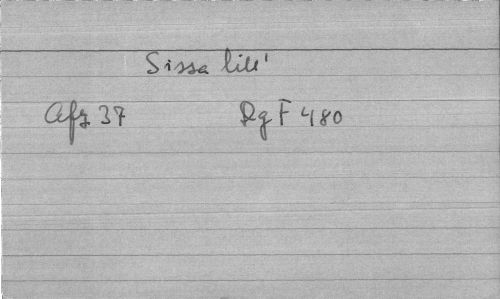 Sissa lill'
Afz 37 Rg F 480